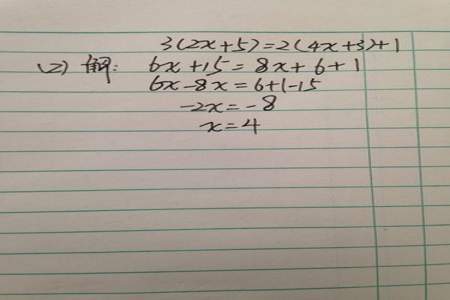 3(2x+5)=2(4x+3)+1
(2) 解: 6x+15=8x+6+1
6x-8x=6+1-15
-2x=-8
x=4